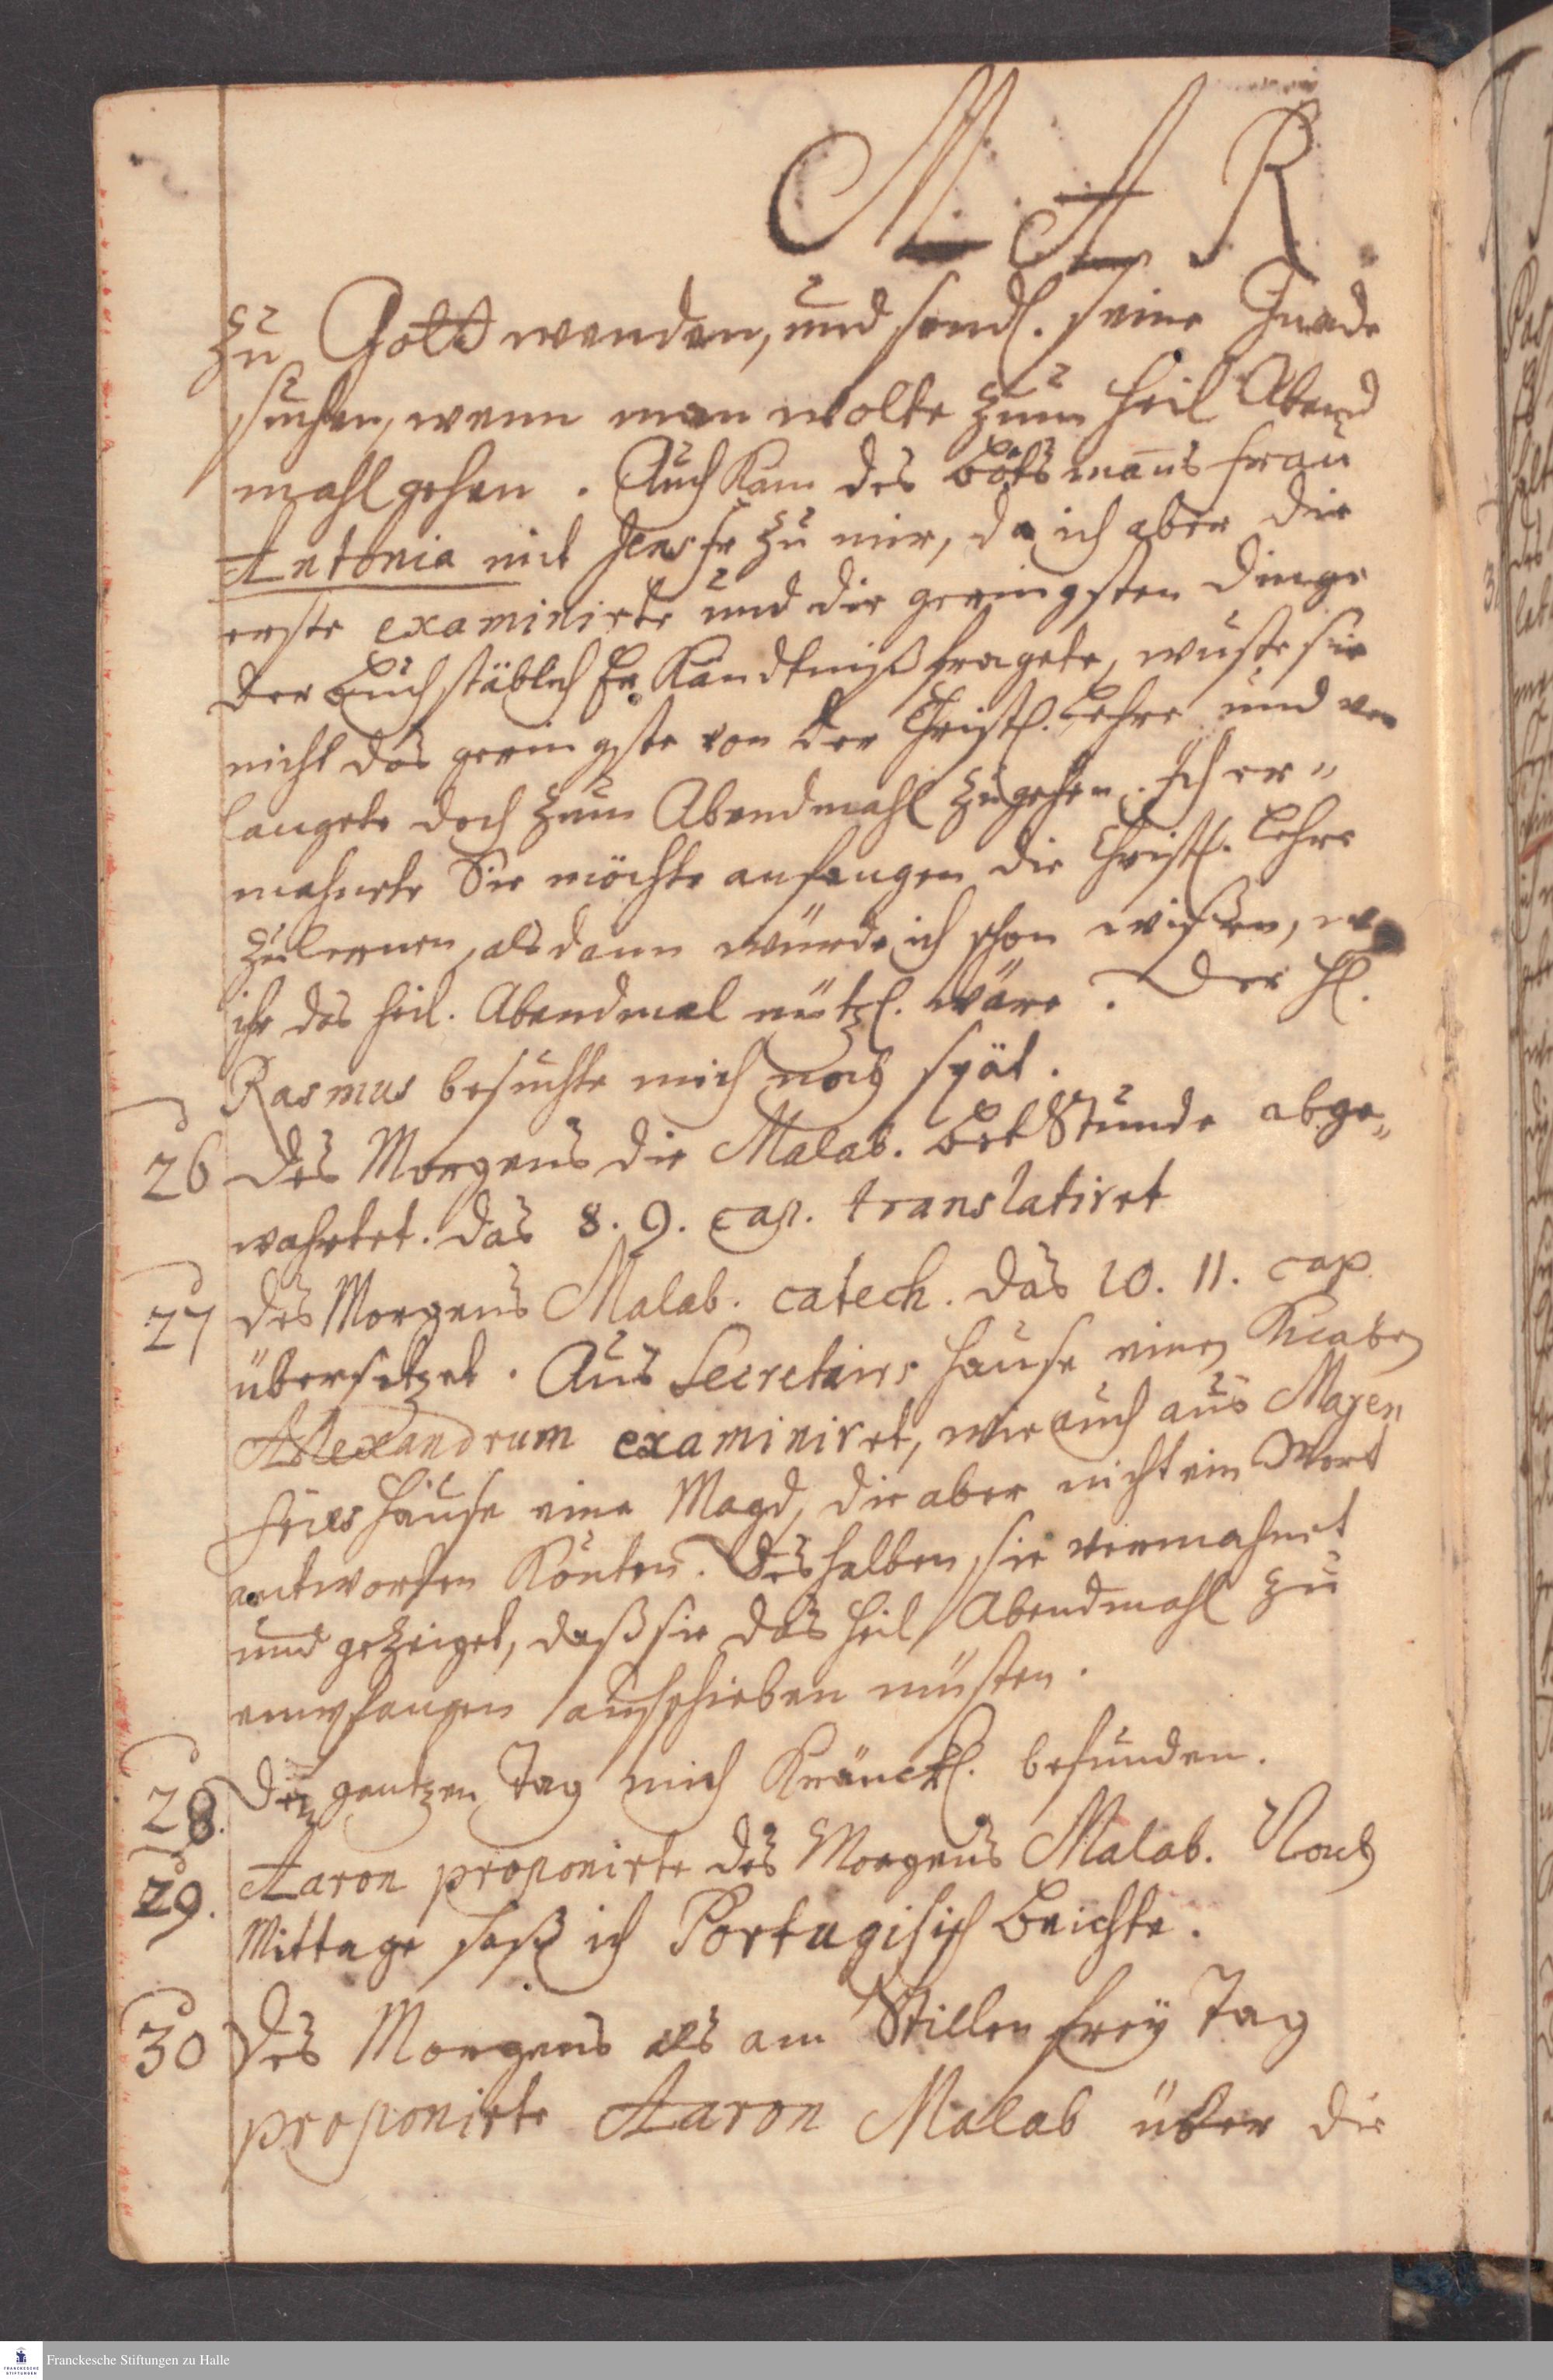 M. A. R.
zu Gott wenden, und sendl. seine Gnade
suchen, wenn man wolte zum heil Abend
mahl gehen. Auch kam des Bötsmans frau
Antonia mit zu mir, da ich aber die
erste examinirte und die geringsten Dinge
der Buchstäblich Er Kändtniß fragete, wuste sie
nicht das geringste von der Christl. Lehre und ver
langete doch zum Abendmahl zu gehen. Ich er"
mahnete Sie möchte anfangen die Christl. Lehre
zu lernen, als dann würde ich schon wißen, wo
ihr das heil. Abendmal nützl. wäre. Der H.
Rasmus besuchte mich noch spät.
26 Des Morgens die Malab. Bet Stunde abge"
wahrtet. das 8. 9. cap. translatiret
27 des Morgens Malab. catech. das 10. 11. cap
übersetzet. Aus Secretairs Hause einen Knaben
Alexandrum examiniret, wie auch aus Mayen
Hause eine Magd, die aber nicht ein Wort
antworten Könten. Deshalben sie vermahnet
und gezeiget, daß sie das heil Abendmahl zu
empfangen aufschieben müsten.
28. Den gantzen Tag mich Kränckl. befunden.
29. Aaron proponirte des Morgens Malab. Nach
Mittage saß ich Portugisisch Beichte.
30 Des Morgens als am Stillen frey Tag
proponirte Aaron Malab über die
Franckesche Stiftungen zu Halle